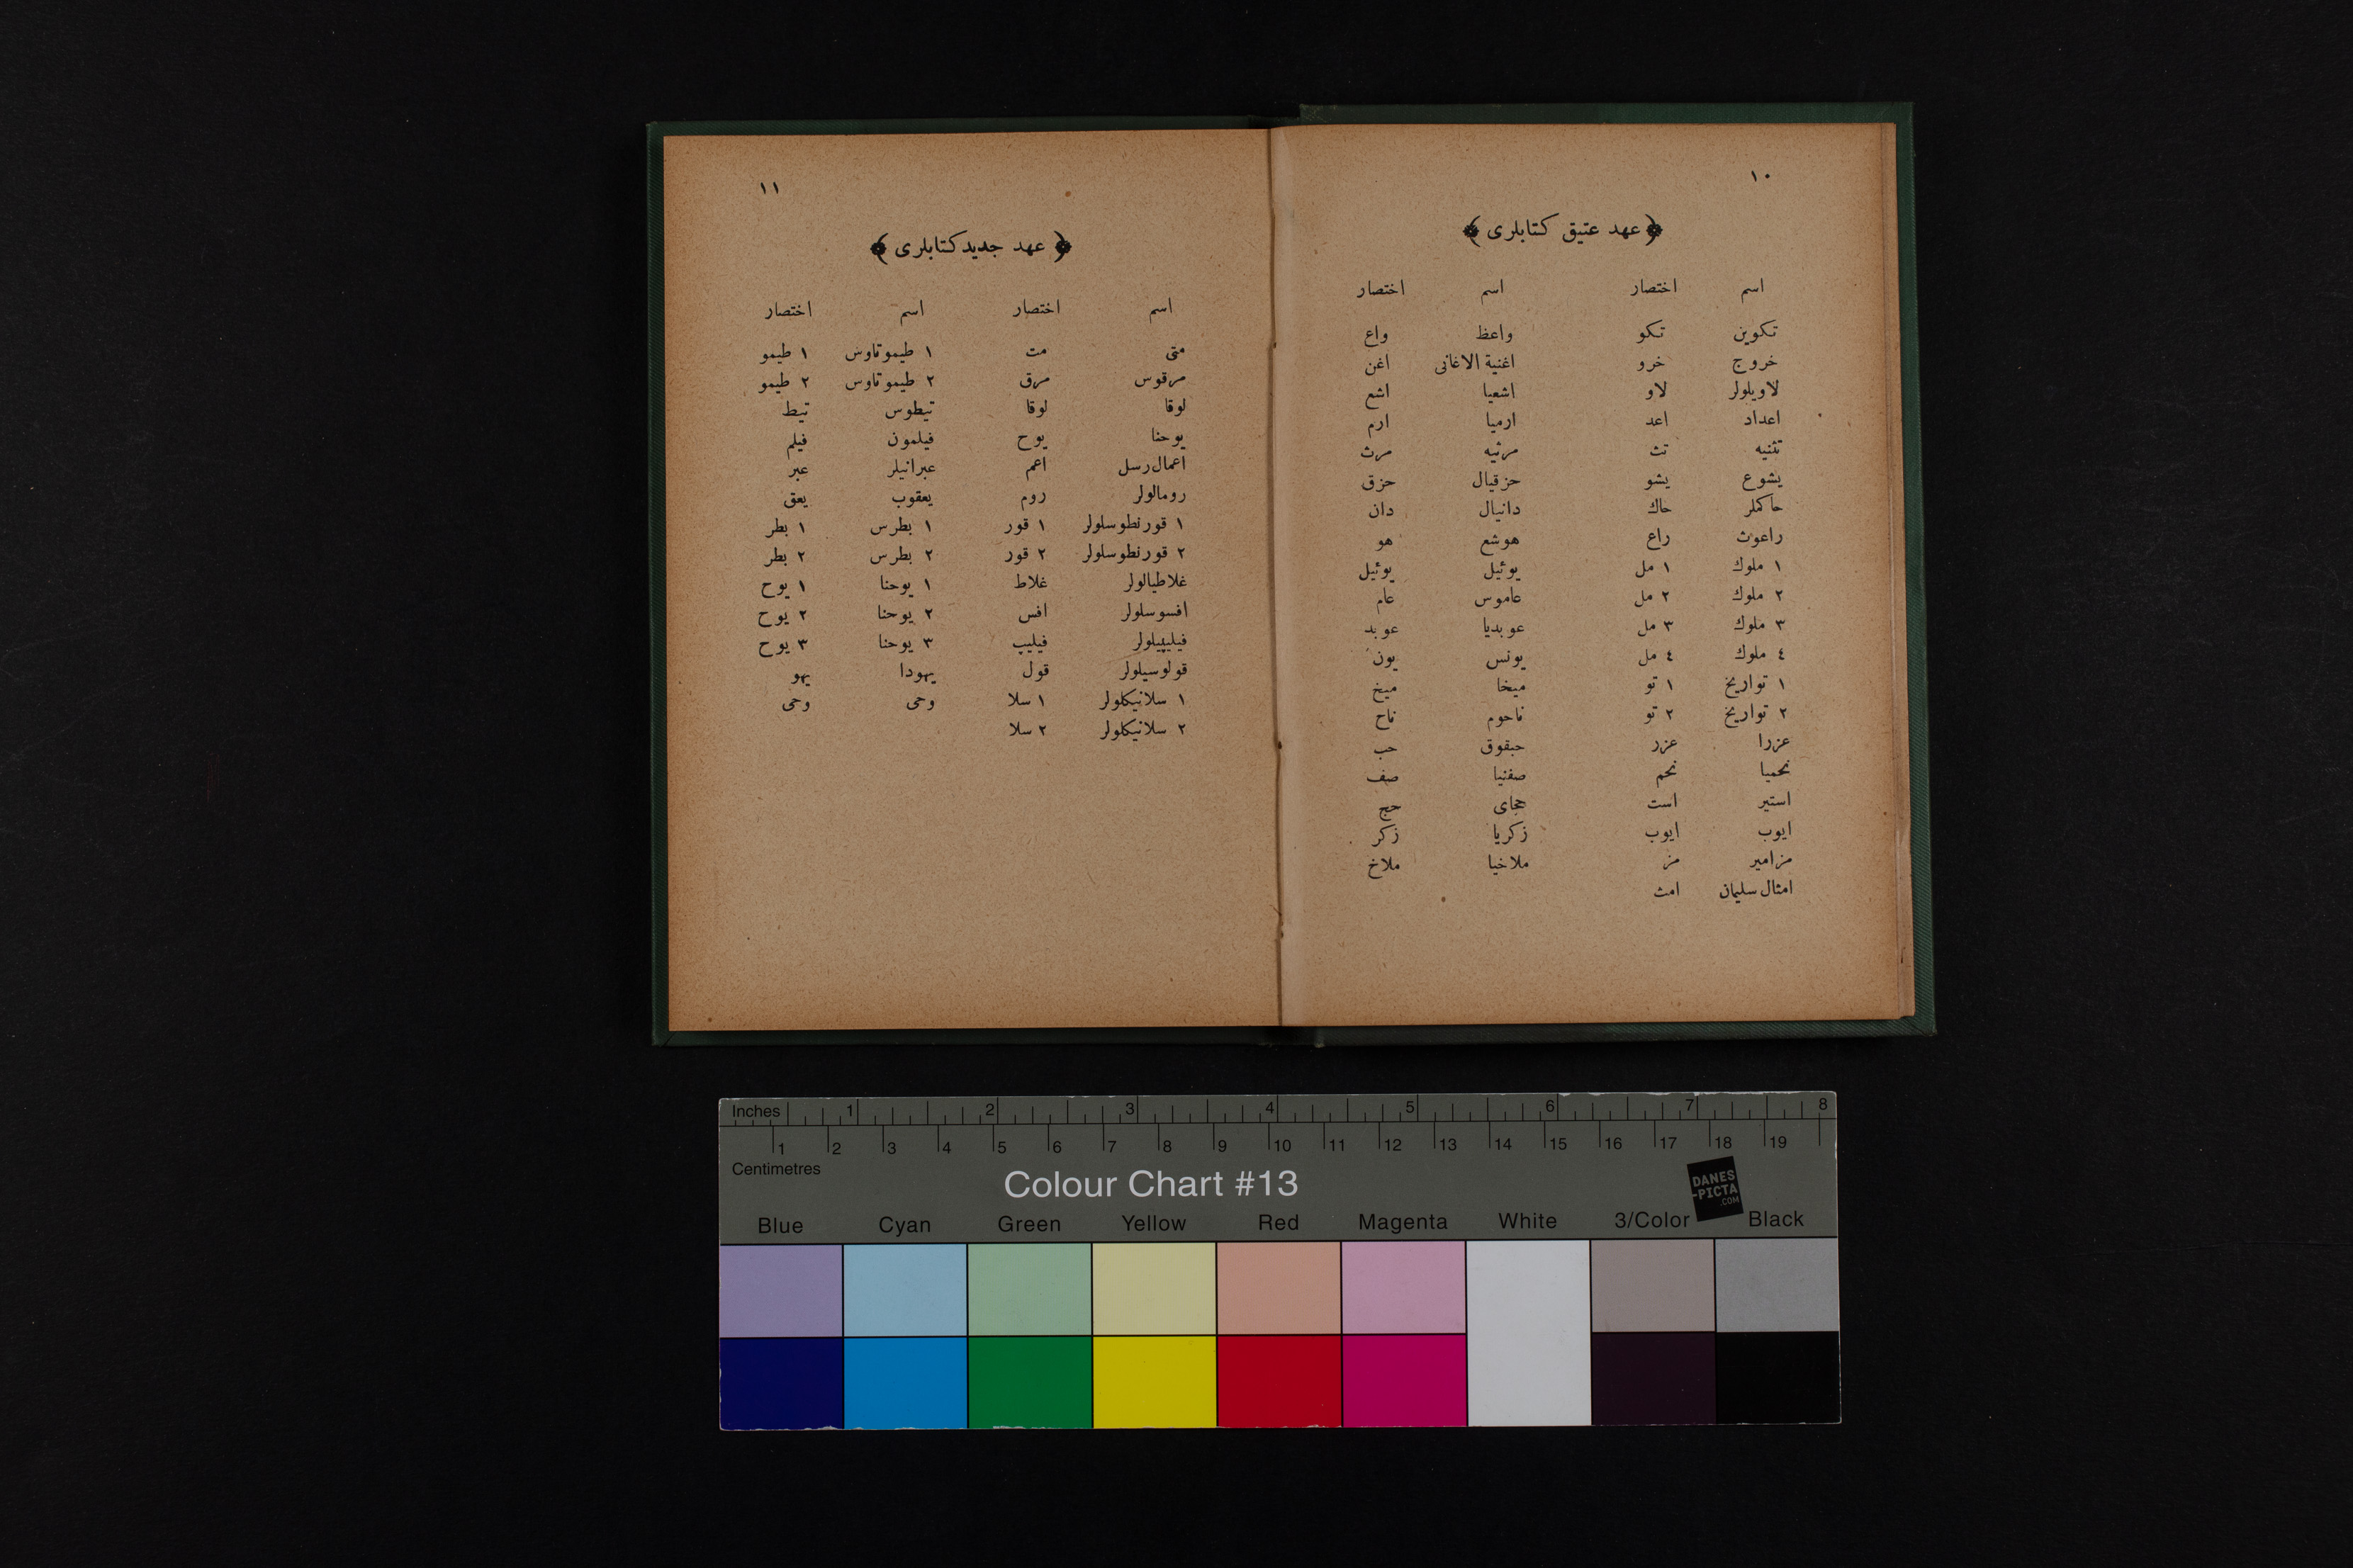 ١٠
﴿ عهد عتيق كتابلرى ﴾
اسم اختصار اسم اختصار
تكوين تكو واعظ واع
خروج خرو اغنية الاغانى اغن
لاويلولر لاو اشعيا اشع
اعداد اعد ارميا ارم
تثنيه تث مرثيه مرث
يشوع يشو حزقيال حزق
حاكملر حاك دانيال دان
راعوث راع هوشع هو
١ ملوك ١ مل يوئيل يوئيل
٢ ملوك ٢ مل عاموس عام
٣ ملوك ٣ مل عوبديا عوبد
٤ ملوك ٤ مل يونس يون
١ تواريخ ١ تو ميخا ميخ
٢ تواريخ ٢ تو ناحوم ناح
عزرا عزر حبقوق حب
نحميا نحم صفنيا صف
استير است حجاى حج
ايوب ايوب زكريا زكر
مزامير مز ملاخيا ملاخ
امثال سليمان امث
١١
﴿ عهد جديد كتابلرى ﴾
اسم اختصار اسم اختصار
متى مت ١ طيموتاوس ١ طيمو
مرقوس مرق ٢ طيموتاوس ٢ طيمو
لوقا لوقا تيطوس تيط
يوحنا يوح فيلمون فيلم
اعمال رسل اعم عبرانيلر عبر
رومالولر روم يعقوب يعق
١ قورنطوسلولر ١ قور ١ بطرس ١ بطر
٢ قورنطوسلولر ٢ قور ٢ بطرس ٢ بطر
غلاطيالولر غلاط ١ يوحنا ١ يوح
افسوسلولر افس ٢ يوحنا ٢ يوح
فيليپيلولر فيليپ ٣ يوحنا ٣ يوح
قولوسيلولر قول يهودا يهو
١ سلانيكلولر ١ سلا وحى وحى
٢ سلانيكلولر ٢ سلا
Inches 1 2 3 4 5 6 7 8
1 2 3 4 5 6 7 8 9 10 11 12 13 14 15 16 17 18 19
Centimetres
Colour Chart #13
DANES
-PICTA
.COM
Blue Cyan Green Yellow Red Magenta White 3/Color Black